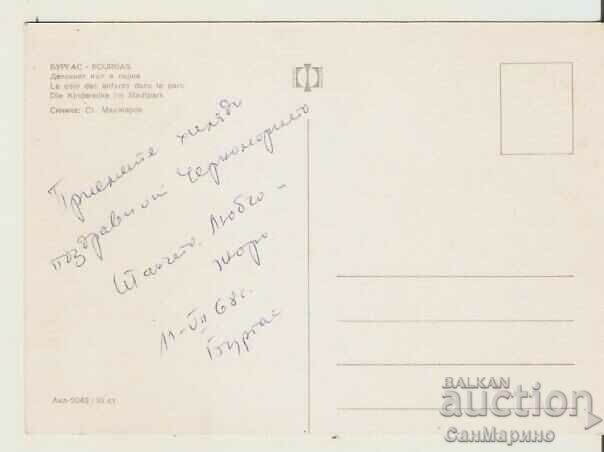 БУРГАС - BOURGAS
Детският кът в парка
Le coin des enfants dans le parc
Die Kinderecke im Stadtpark
Снимка: Ст.
Приемете хиляди
поздрави от Черноморието
Любчо -
Жоро
11-VII 68 г.
Бургас
Акл-2042 / III ст
BALKAN
auction
СанМарино